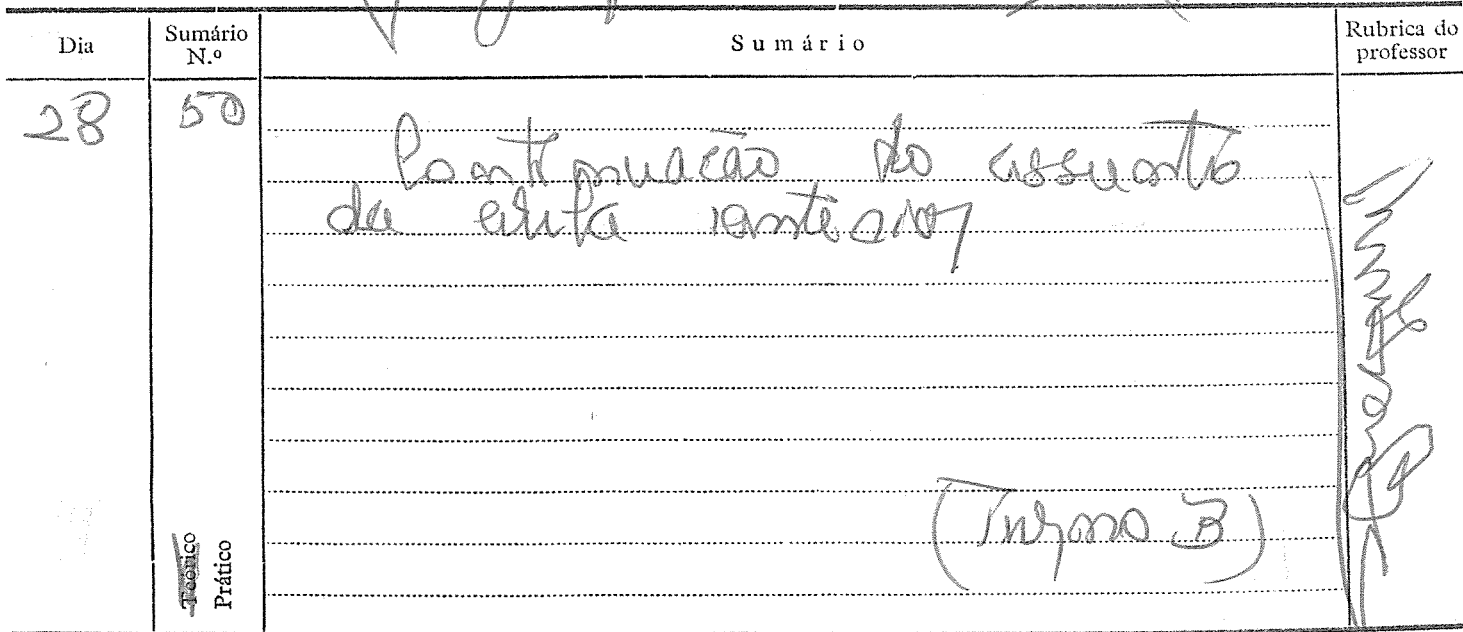 Dia
Sumário
N.º
Sumário
Rubrica do
professor
28
50
Continuação do assunto
da aula anterior
(Turma B)
Teórico
Prático